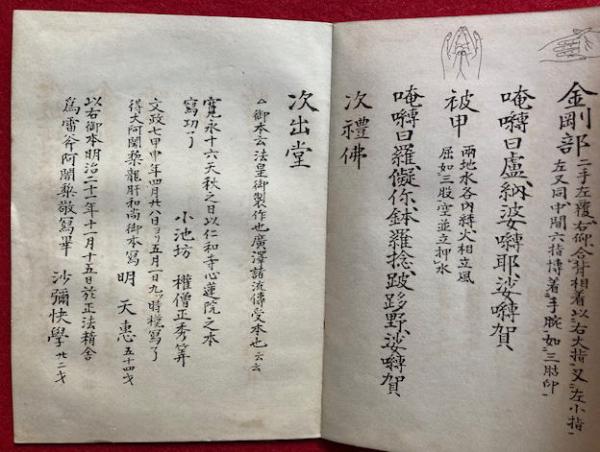 金剛部 二手左覆右仰合背相着以右大指叉左小指
左叉同中間六指博着手腕如三股印
唵嚩日盧納婆嚩耶娑嚩賀
被甲 両地水各内縛火相立風
屈如三股空並立押水
唵嚩日羅儗你鉢羅捻跛跢野娑嚩賀
次禮佛
次出堂
御本云法皇御製作也廣澤諸流傳受本也云云
寛永十六天秋之日以仁和寺心蓮院之本
寫功了
小池坊 權僧正秀算
文政七甲申年四月廿八日ヨリ五月一日九時種寫了
得大阿闍梨龍肝和尚御本寫 明天恵 五十四才
以右御本明治二十一年十一月十五日於正法精舎
為雷斧阿闍梨敬寫畢 沙彌快學 廿二才